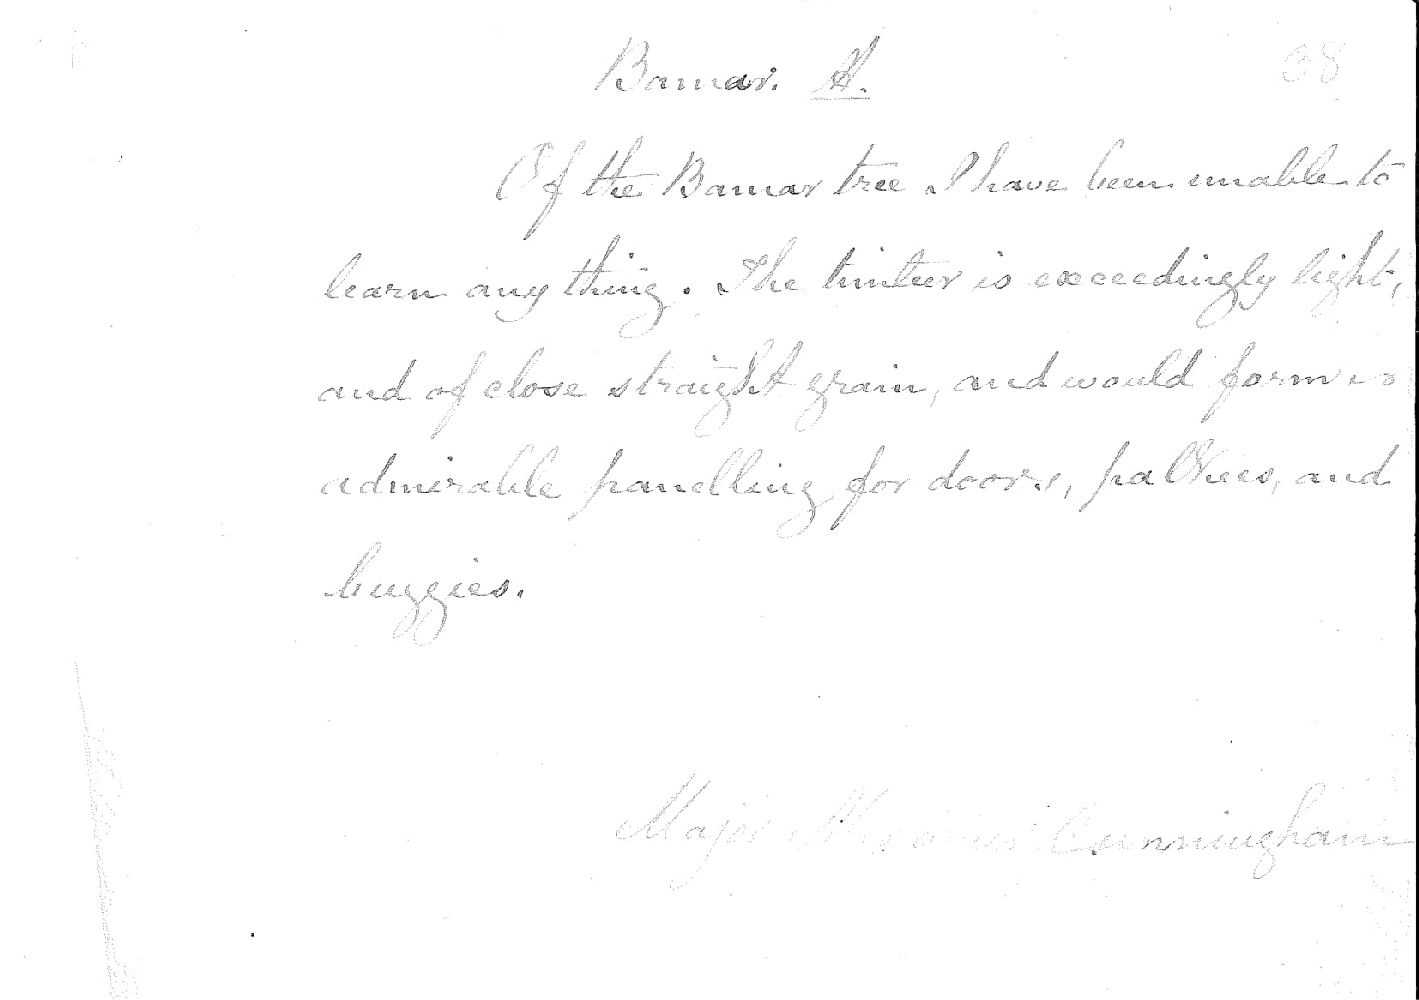 Bamar. H.
38
Of the Bamar tree I have been unable to
learn anything. The timber is exceedingly light,
and of close straight grain, and would form
admirable panelling for doors, palkees, and
buggies.
Major Cunningham